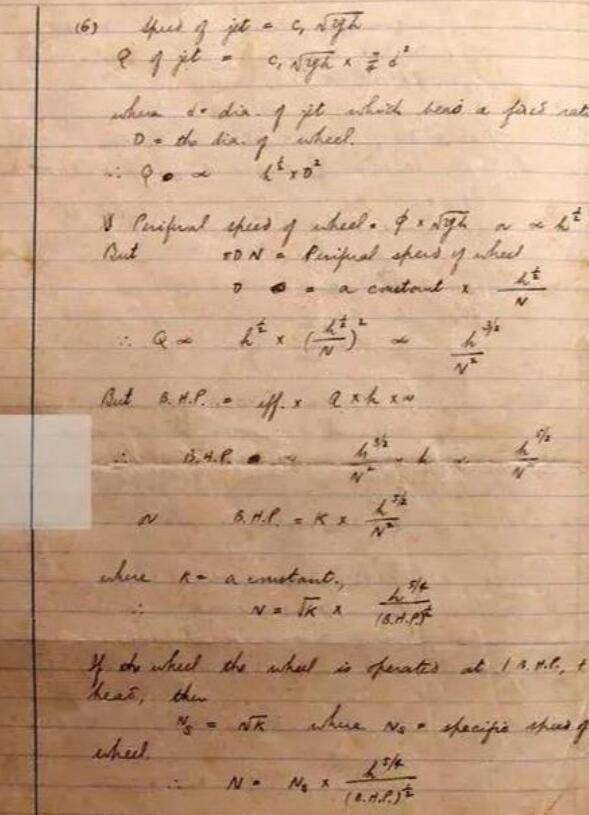 (6) Speed of jet = C₁ √2gh
Q of jet = C₁ √2gh × π/4 d²
where d = dia. of jet which bears a fixed
D = the dia. of wheel.
∴ Q ∝ h^½ × D²
Periferal speed of wheel = φ × √2gh or ∝ h^½
But πDN = Periferal speed of wheel
D = a constant × h^½/N
∴ Q ∝ h^½ × (h^½/N)² ∝ h^3/2/N²
But B.H.P. = eff. × Q × h × w
∴ B.H.P. ∝ h^3/2/N² × h ∝ h^5/2/N²
or B.H.P. = K × h^5/2/N²
where K = a constant.,
∴ N = √K × h^5/4/(B.H.P.)^½
If the wheel the wheel is operated at 1 B.H.P.,
head, then
Ns = √K where Ns = specific speed of
wheel.
∴ N = Ns × h^5/4/(B.H.P.)^½